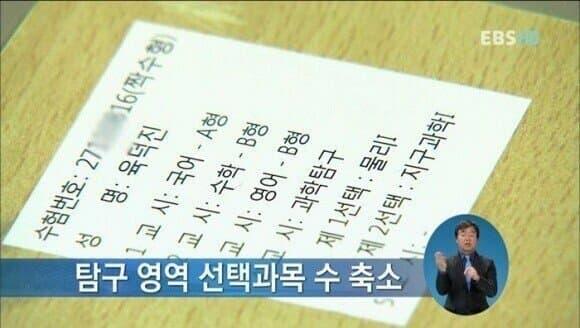 EBS HD
수험번호: 27 16(짝수형)
성 명 : 육덕진
1 교 시 : 국어 - A형
교 시 : 수학 - B형
교 시 : 영어 - B형
교 시 : 과학탐구
제 1선택 : 물리I
제 2선택 : 지구과학I
시 : -
탐구 영역 선택과목 수 축소